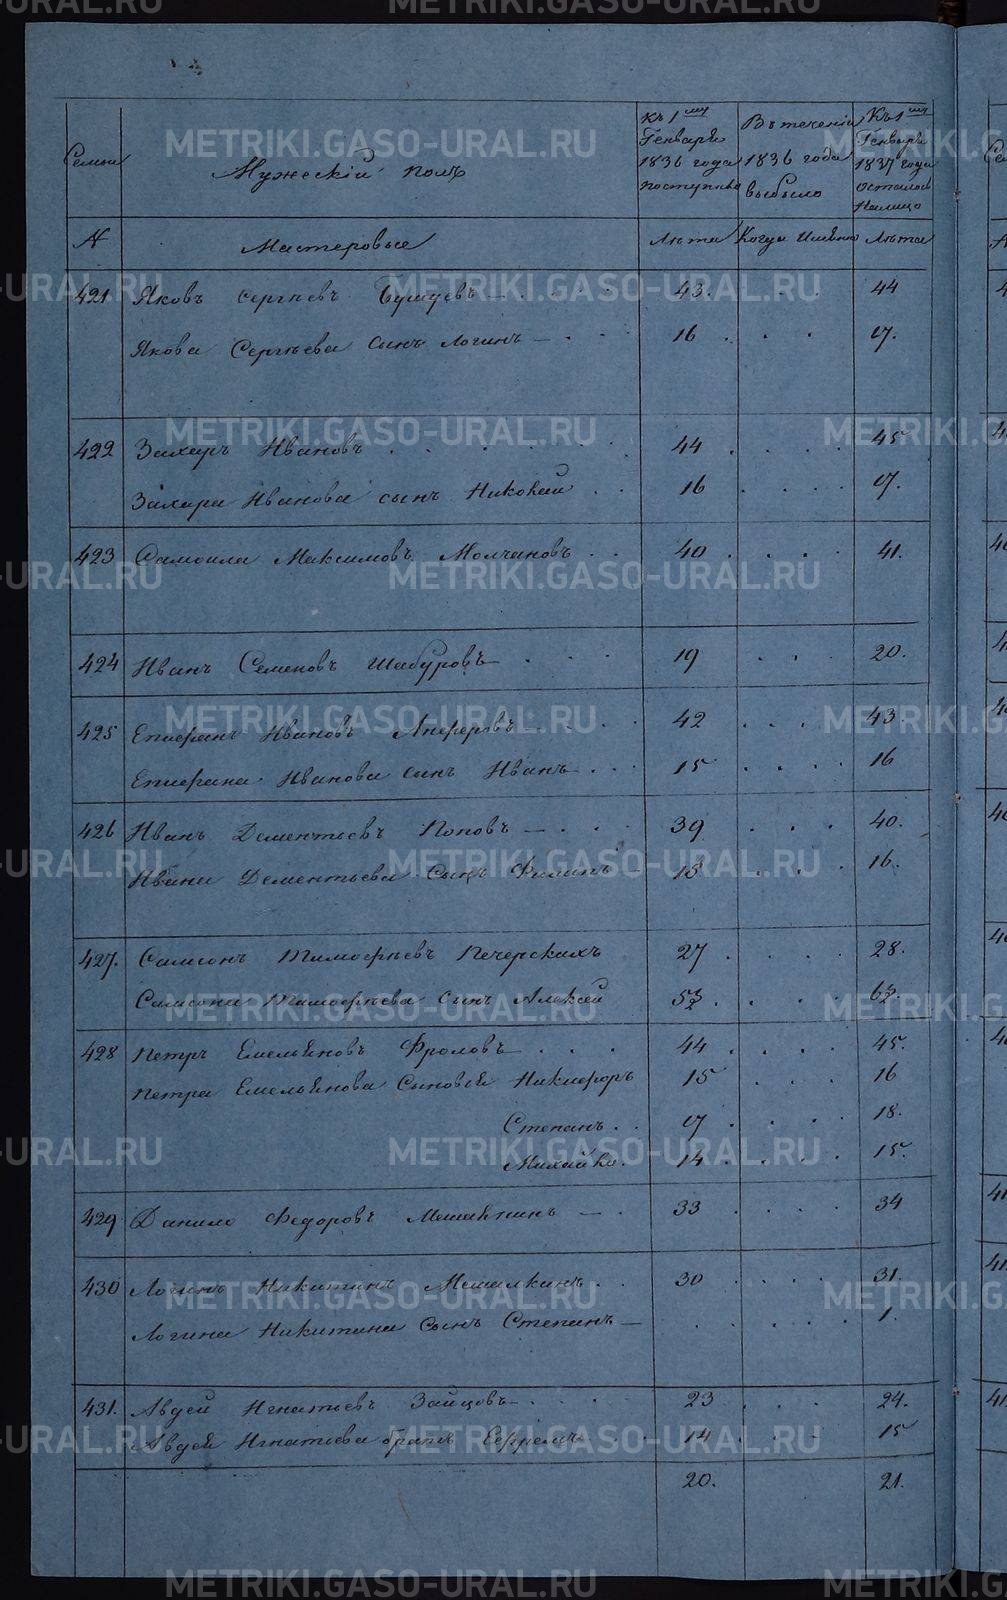 Семьи
Мужескій полъ
Къ 1му Генваря 1836 года поступило
Въ теченіи 1836 года выбыло
Къ 1му Генваря 1837 года осталось на лицо
№ Мастеровые Лѣта Когда именно Лѣта
421 Яковъ Сергѣевъ 43. 44
Якова Сергѣева сынъ Логинъ 16 17.
422 Захаръ Ивановъ 44 45
Захара Иванова сынъ Николай 16 17.
423 Самоила Максимовъ Молчановъ 40 41.
424 Иванъ Семеновъ Шабуровъ 19 20.
425 Епифанъ Ивановъ Анферовъ 42 43.
Епифана Иванова сынъ Иванъ 15 16
426 Иванъ Дементьевъ Поповъ 39 40.
Ивана Дементьева сынъ 15 16.
427. Самсонъ Тимофѣевъ Печерскихъ 27 28.
Самсона Тимофѣева сынъ Алексѣй 5½ 6½.
428 Петръ Емельяновъ Фроловъ 44 45.
Петра Емельянова сыновья Никифоръ 15 16
Степанъ 17 18.
Михайло. 14 15.
429 Данило Федоровъ 33 34
430 Логинъ Никитинъ Мешалкинъ 30 31.
Логина Никитина сынъ Степанъ 1.
431. Авдей Игнатьевъ Зайцовъ 23 24.
Авдея Игнатьева братъ Ефремъ 14 15
20. 21.
METRIKI.GASO-URAL.RU